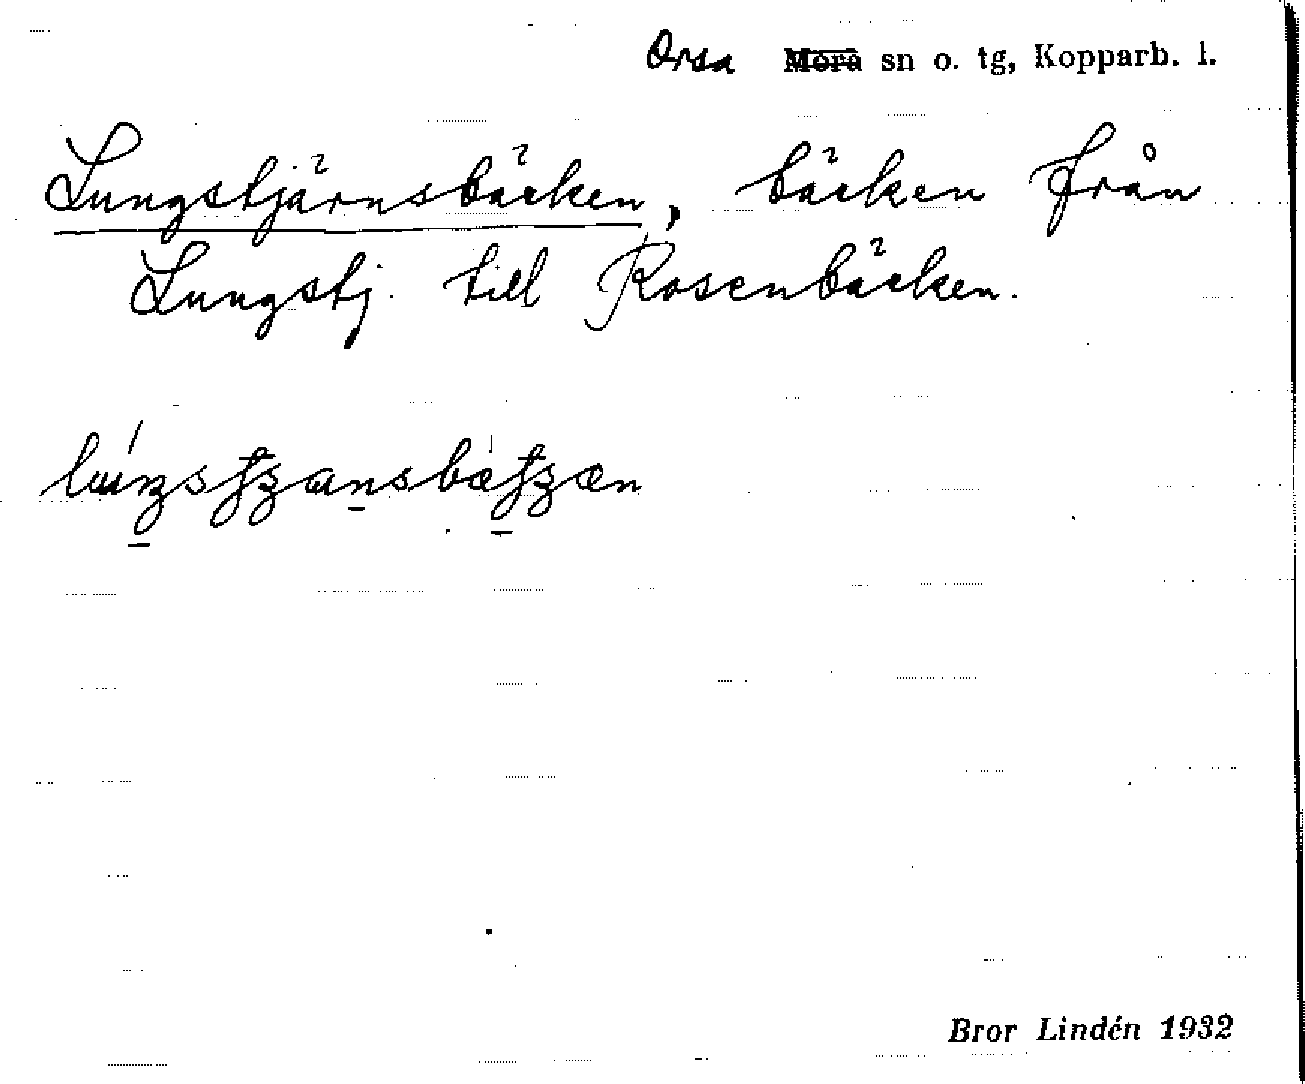 Orsa Mora sn o. tg, Kopparb. l.
Lungstjärnsbäcken, bäcken från
Lungstj. till Rosenbäcken.
Bror Lindén 1932